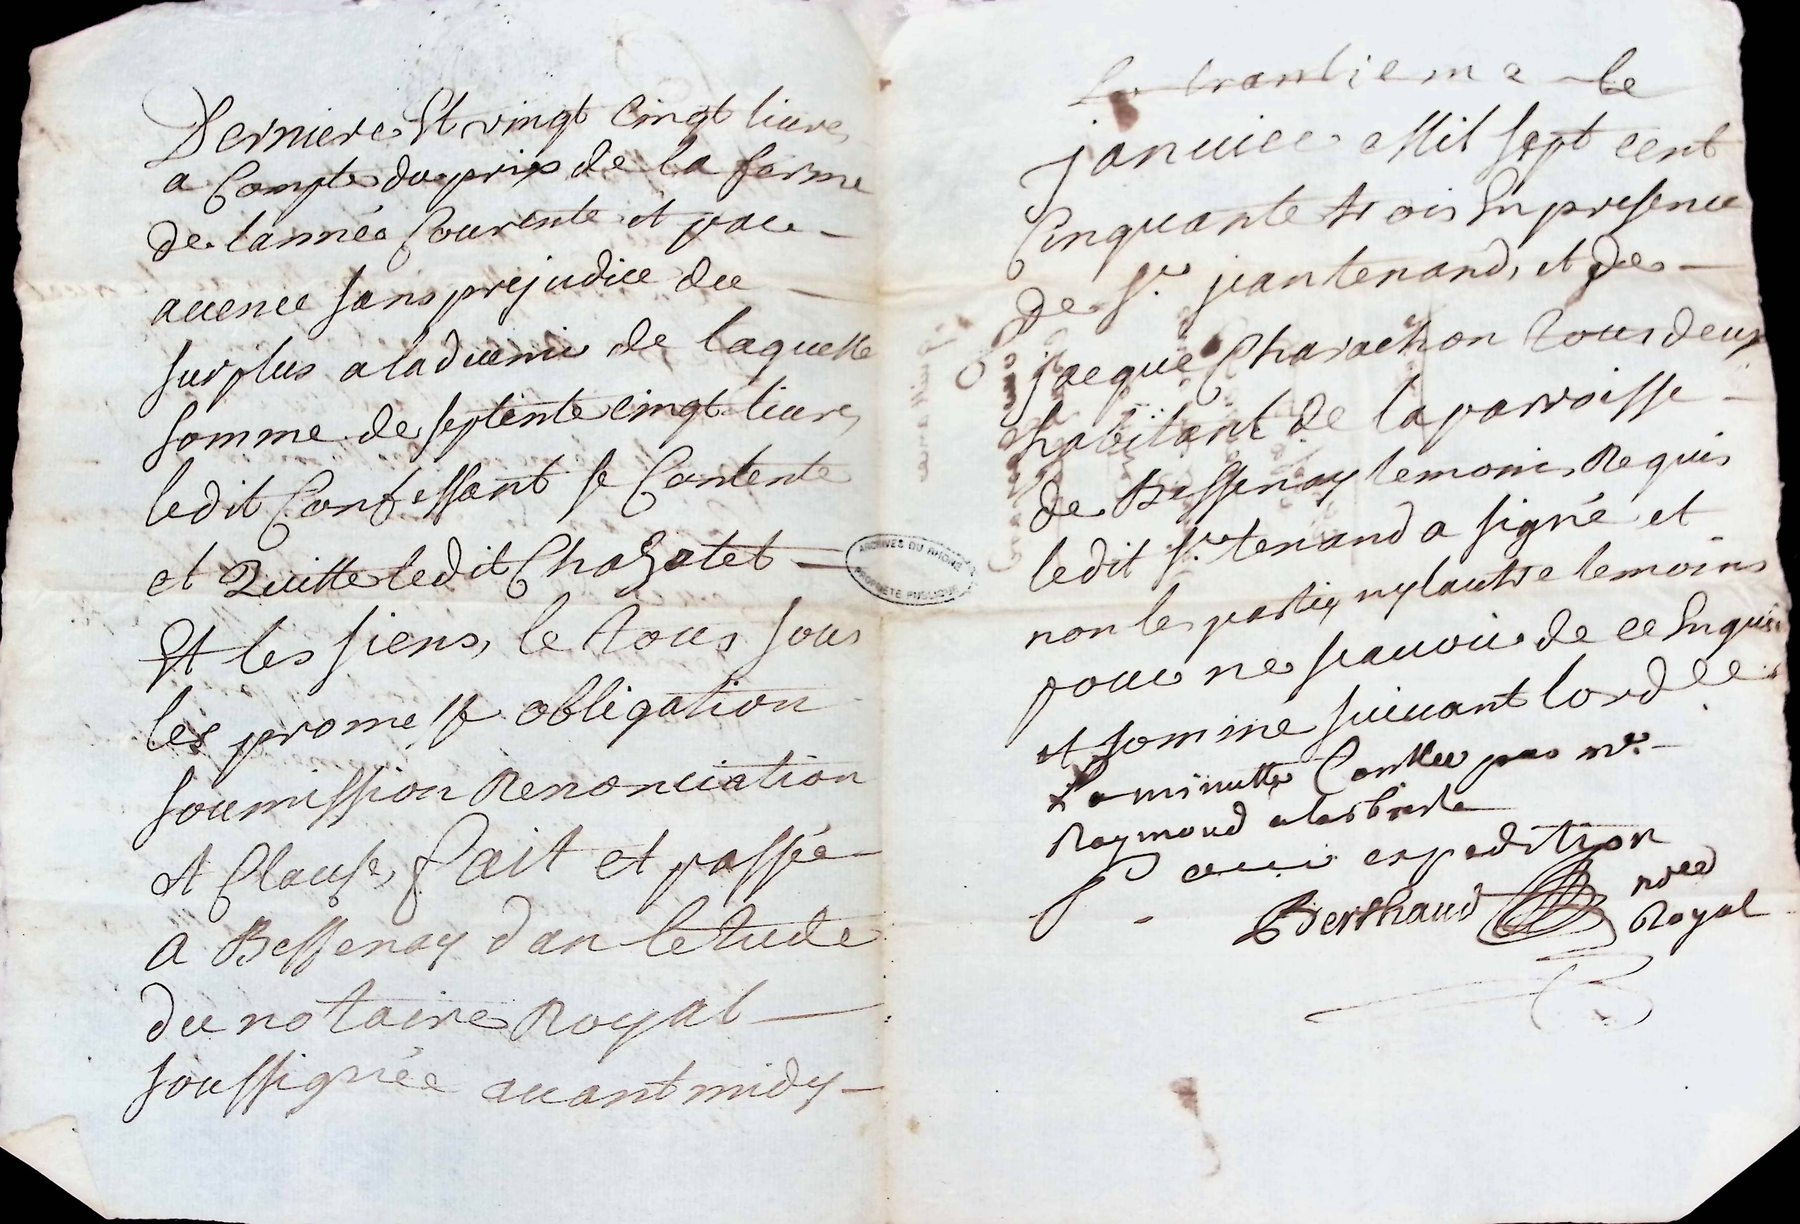 Derniere Et vingt Cinqt livres
a Compte du prix de la ferme
de lannéé Courente et par
avence sans prejudice du
surplus a ladvenir de laquelle
somme de septente cinqt livres
ledit Confessant se Contente
et Quitte ledit Chazotet
Et les siens, le tous sous
les promesse obligation
soumission Renonciation
et Clause, fait et passée
a Bessenay dan letude
du notaire Royal
soussignée avant midy
le trantieme
janvier Mil sept cent
Cinquante trois En presence
de sr. jean tenand, et de
jacque Charachon tous deux
habitant de la parroisse
de Bessenay temoins Requis
ledit sr. tenand a signé et
non les partiy ny lautre temoins
pour ne scavoir de ce Enquis
et sommé suivant lordre
La minutte Contlee par me.
Raymond a larbresle
expedition
Berthaud nore
Royal
ARCHIVES DU RHONE
PROPRIETE PUBLIQUE